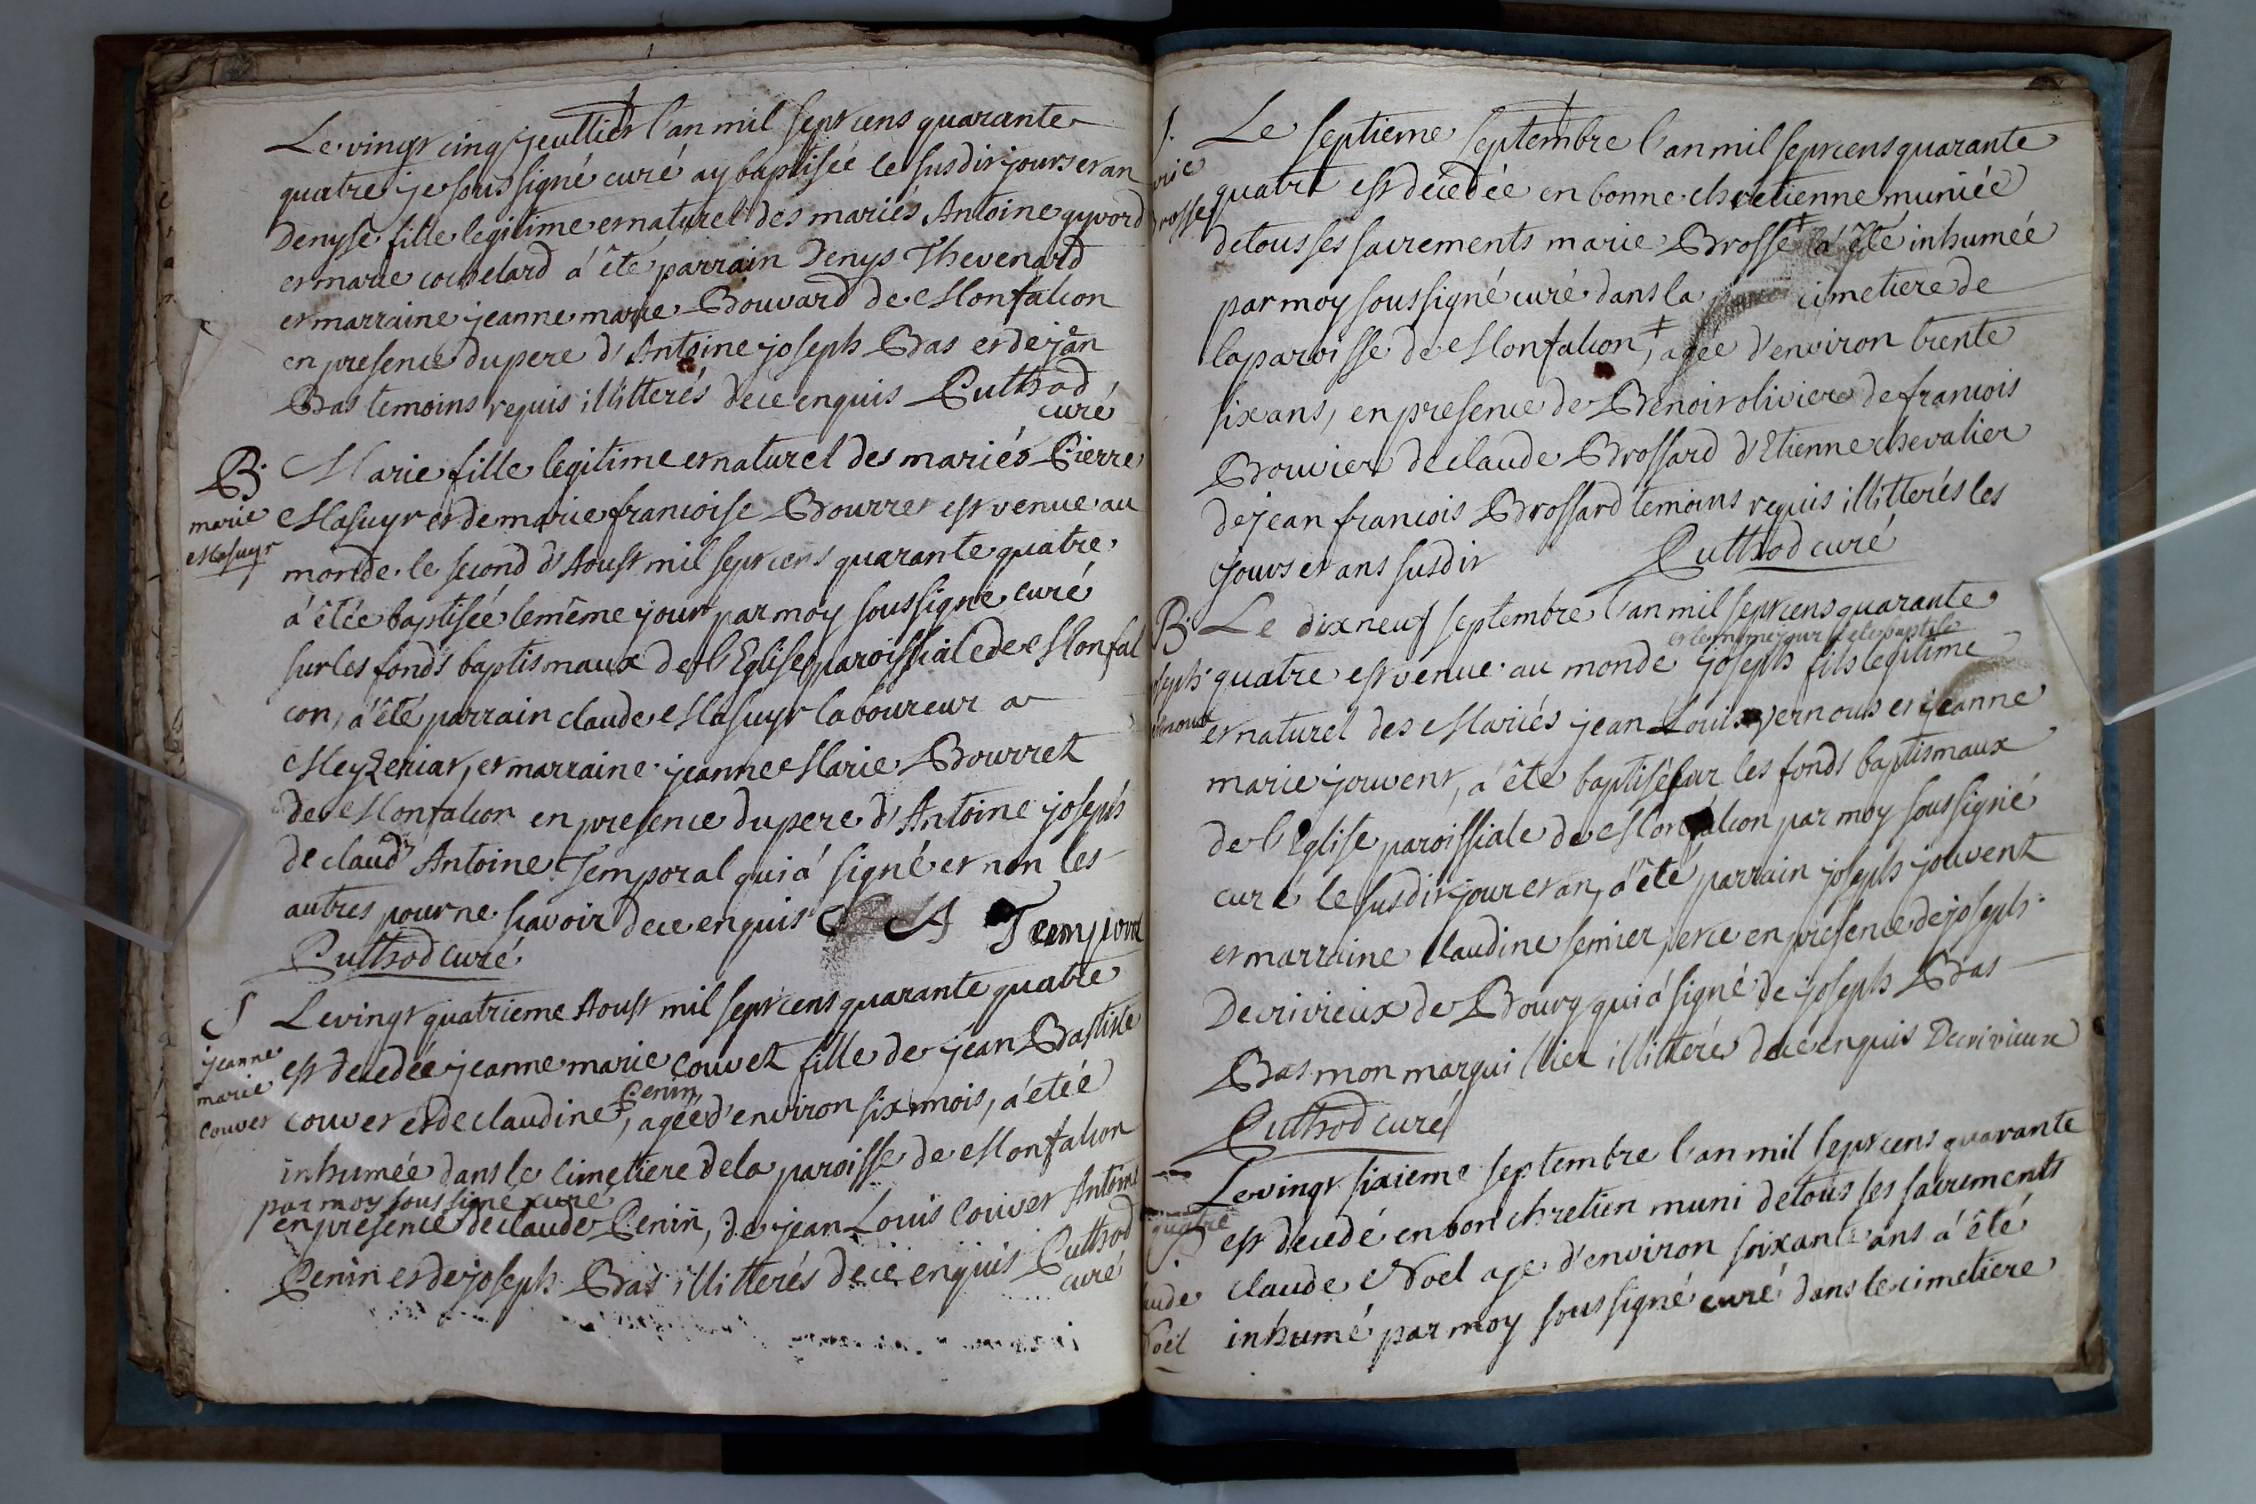 Le vingt cinq jeullier l'an mil sept cens quarante
quatre je sous signé curé ay baptisée le susdit jours et an
Denyse fille legitime et naturel des mariés Antoine gyvord
et marie cochelard á été parrain Denys Thevenard
et marraine jeanne marie Bouvard de Monfalcon
en presence du pere d'Antoine joseph Bas et de jean
Bas temoins requis illitterés de ce enquis Cuthod
curé
B.
marie
Masuyr
Marie fille legitime et naturel des mariés Pierre
Masuyr et de marie francoise Bourret est venue au
monde le second d'Aoust mil sept cens quarante quatre
á étée baptisée le même jour par moy soussigné curé
sur les fonds baptismaux de l'Eglise paroissiale de Monfal
con, á été parrain claude Masuyr laboureur a
Meyzeriat, et marraine jeanne Marie Bourret
de Monfalcon en presence du pere d'Antoine joseph
de claud' Antoine Temporal qui á signé et non les
autres pour ne scavoir de ce enquis C A Temporal
Cuthod curé
S
jeanne
marie
couvet
Le vingt quatrieme Aoust mil sept cens quarante quatre
est decedée jeanne marie couvet fille de jean Bastiste
couvet et de claudine Penin, agée d'environ six mois, á étée
inhumée dans le cimetiere de la paroisse de Monfalcon
par moy sous signé curé
en presence de claude Penin, de jean Louis couvet Antoine
Penin et de joseph Bas illitterés de ce enquis Cuthod
curé
S.
rie
rosse
Le septieme septembre l'an mil sept cens quarante
quatre est décedée en bonne chretienne muniée
de tous ses sacrements marie Brosse á été inhumée
par moy soussigné curé dans la cimetiere de
la paroisse de Monfalcon, agée d'environ trente
six ans, en presence de Benoit olivier de francois
Bouvier de claude Brossard d'Etienne chevalier
de jean francois Brossard temoins requis illitterés les
jours et ans susdit Cuthod curé
B.
oseph
ernous
Le dix neuf septembre l'an mil sept cens quarante
et le même jour á eté baptisé
quatre est venue au monde joseph fils legitime
et naturel des Mariés jean Louis vernous et jeanne
marie jouvent, á été baptisé sur les fonds baptismaux
de l'Eglise paroissiale de Monfalcon par moy soussigné
curé le susdit jour et an, á été parrain joseph jouvent
et marraine claudine semier, et ce en presence de joseph
Decrivieux de Bourg qui á signé de joseph Bas
Bas mon marguillier illitteré de ce enquis Decrivieux
Cuthod curé
Le vingt sixieme septembre l'an mil sept cens quarante
quatre
S
aude
Noël
est decedé en bon chretien muni de tous ses sacrements
claude Noel age d'environ soixante ans á été
inhumé par moy sous signé curé dans le cimetiere